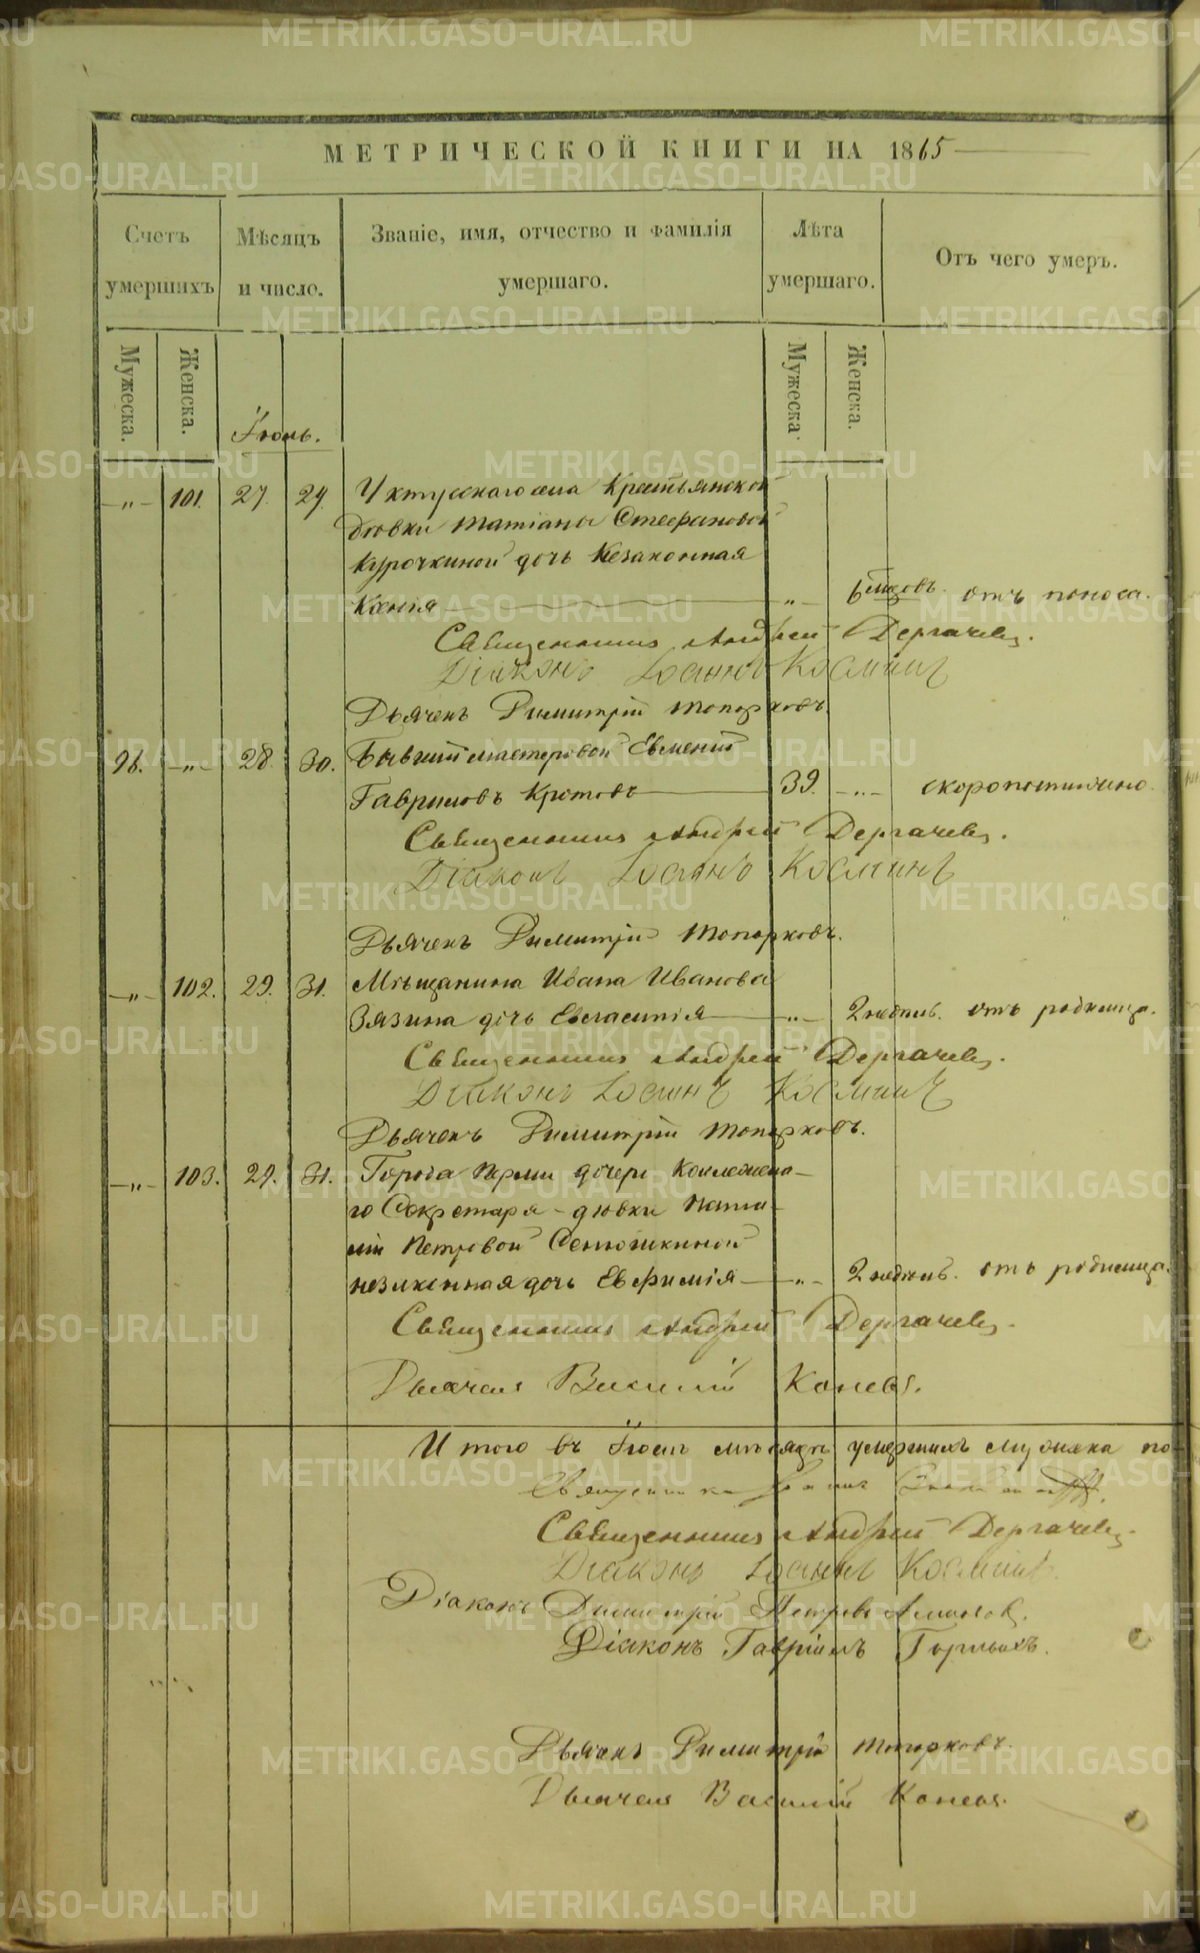 МЕТРИЧЕСКОЙ КНИГИ НА 1865
Счетъ умершихъ
Мѣсяцъ и число.
Званіе, имя, отчество и фамилія умершаго.
Лѣта умершаго.
Отъ чего умеръ.
Мужеска.
Женска.
Мужеска
Женска.
Іюль.
-„- 101. 27. 29. Уктусскаго села Крестьянской
дѣвки Татіаны Стефановой
Курочкиной дочь Незаконная
Ксенія -„- 6 мѣсцовъ. отъ поноса.
Священникъ Андрей Дергачевъ.
Діаконъ Іоаннъ Косминъ
Дьячекъ Димитрій Топорковъ.
96. -„- 28. 30. Бывшій мастеровой Евмений
Гавриловъ Кротовъ 39. -„- скоропостижно.
Священникъ Андрей Дергачевъ.
Діаконъ Іоаннъ Косминъ
Дьячекъ Димитрій Топорковъ.
-„- 102. 29. 31. Мѣщанина Ивана Иванова
Зязина дочь -„- 2 недѣль. отъ родимца.
Священникъ Андрей Дергачевъ.
Діаконъ Іоаннъ Косминъ
Дьячекъ Димитрій Топорковъ.
-„- 103. 29. 31. Города Перми дочери Коллежска-
го Секретаря - дѣвки Ната-
ліи Петровой Сенюшкиной
незаконная дочь Евфимія -„- 2 недѣль. отъ родимца.
Священникъ Андрей Дергачевъ.
Дьячекъ Василій Коневъ.
Итого въ Іюлѣ мѣсяцѣ умершихъ мужеска по-
Священникъ
Священникъ Андрей Дергачевъ.
Діаконъ Іоаннъ Косминъ.
Діаконъ Димитрій Петровъ
Діаконъ Гавріилъ Горныхъ.
Дьячекъ Димитрій Топорковъ.
Дьячекъ Василій Коневъ.
METRIKI.GASO-URAL.RU